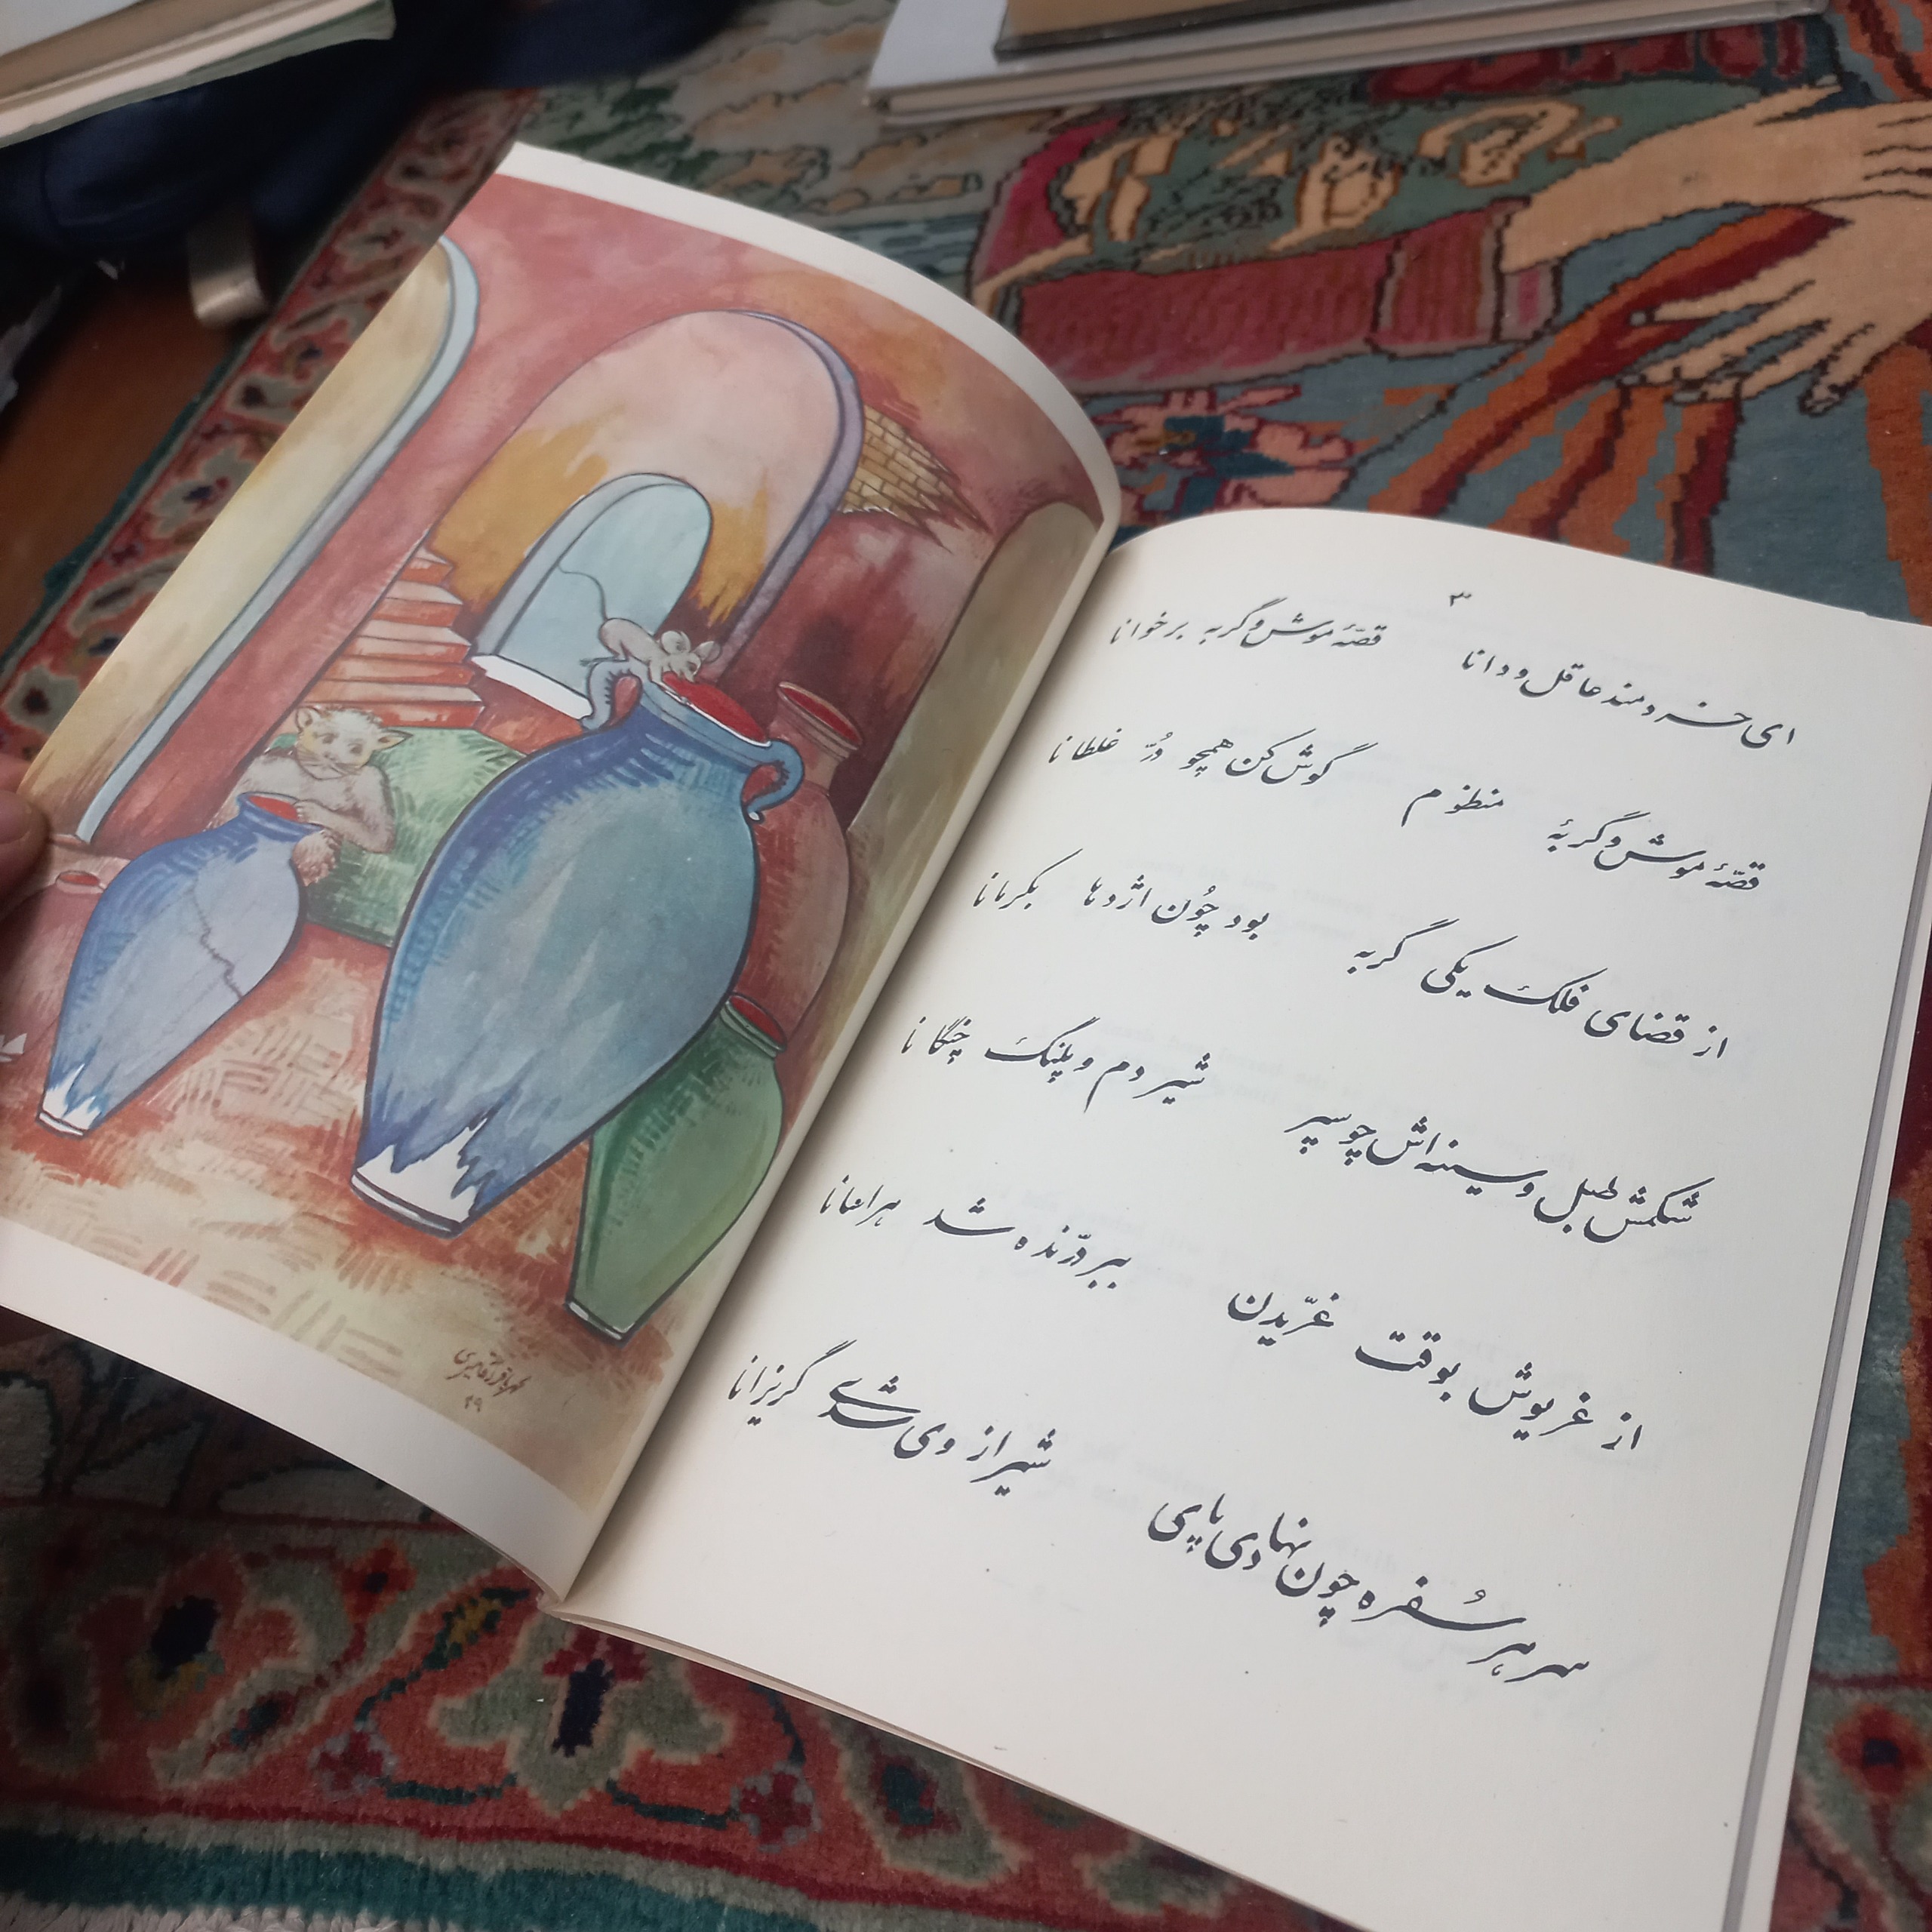 ۳
ای خردمند عاقل و دانا قصّهٔ موش و گربه برخوانا
قصّهٔ موش و گربهٔ منظوم گوش کن همچو دُرّ غلطانا
از قضای فلک یکی گربه بود چُون اژدها بکرمانا
شکمش طبل و سینه‌اش چو سپر شیر دم و پلنگ چنگانا
از غریوش بوقت غرّیدن ببر درّنده شد هراسانا
سر هر سُفره چون نهادی پای شیر از وی شدی گریزانا
۲۹